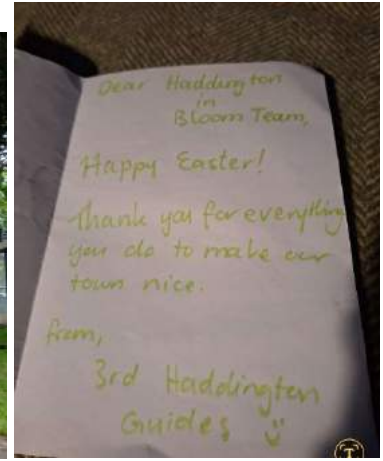 Dear Haddington
in
Bloom Team,
Happy Easter!
Thank you for everything
you do to make our
town nice.
from,
3rd Haddington
Guides ü
T